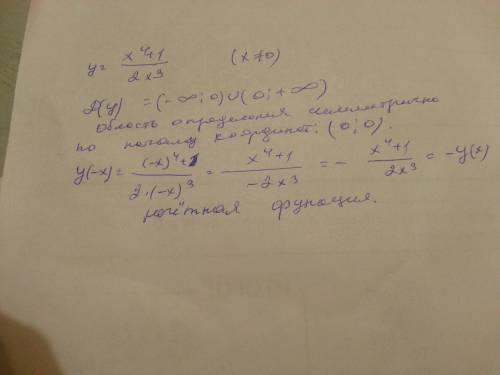 y = (x⁴+1)/(2x³) (x≠0)
D(y) = (-∞; 0)∪(0; +∞)
Область определения симметрично
по началу координат. (0; 0).
y(-x) = ((-x)⁴+1)/(2·(-x)³) = (x⁴+1)/(-2x³) = - (x⁴+1)/(2x³) = -y(x)
нечётная функция.